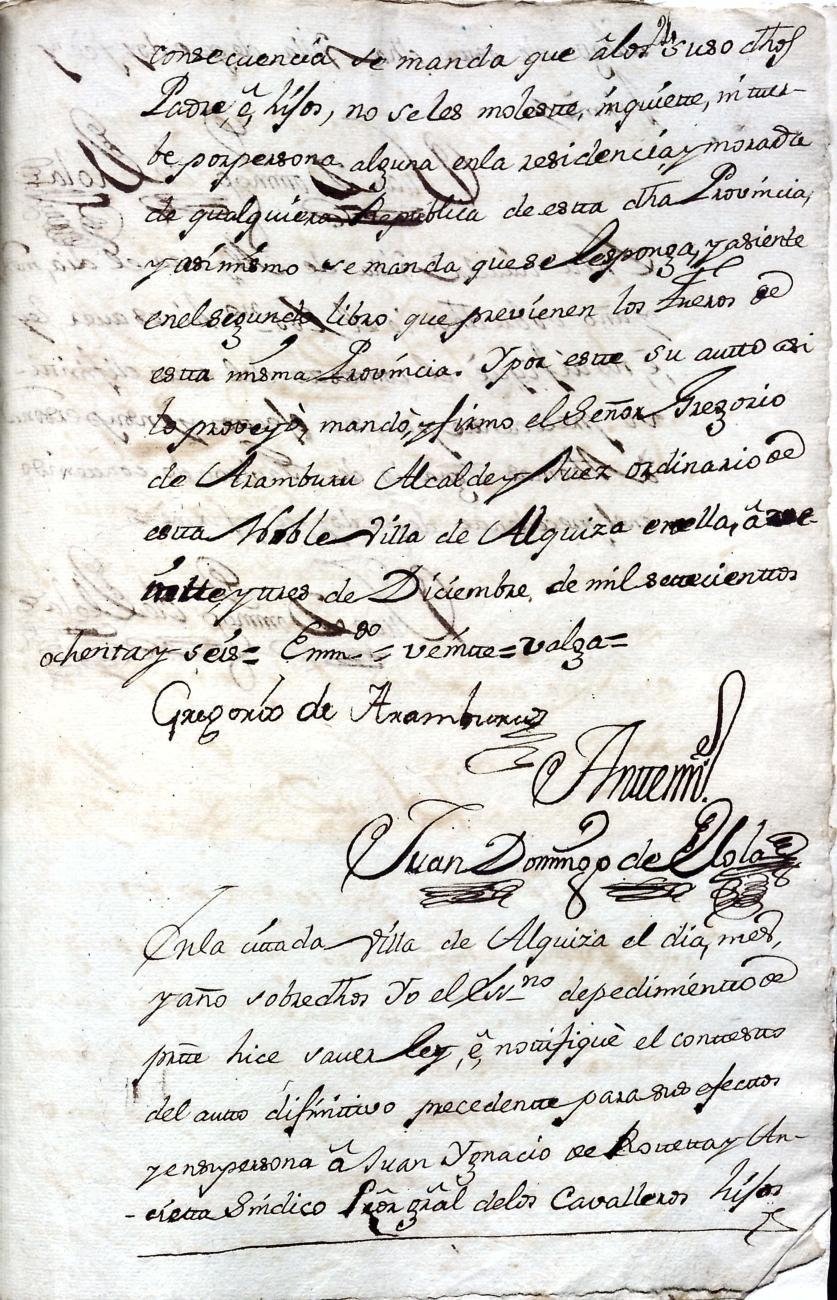 consecuencia se manda que â los suso dhos
Padre, ê hijos, no seles moleste, inquiette, ni tur-
be por persona alguna enla residencia y morada
de qualquiera Republica de esta dha Provincia,
y asimismo se manda que se les ponga, y asiente
enel segundo libro que previenen los Fueros de
esta misma Provincia. Y por este su autto asi
lo proveyò, mandò, y firmo el Señor Gregorio
de Aramburu Alcalde y Juez ordinario de
esta Noble Villa de Alquiza en ella, â
veintte y tres de Diciembre, de mil settecienttos
ochenta y seis = Enm.do = veintte = valga =
Gregorio de Aramburu
Anttemi
Juan Domingo de Elola
Enla cittada Villa de Alquiza el dia, mes,
y año sobredhos Yo el Essno de pedimientto de
partte hice saver ley, ê nottifiquè el conttestto
del autto difinittivo precedentte para sus efecttos
y en su persona â Juan Ygnacio de Rottetta y An-
- cietta Sindico Pror gral delos Cavalleros hijos